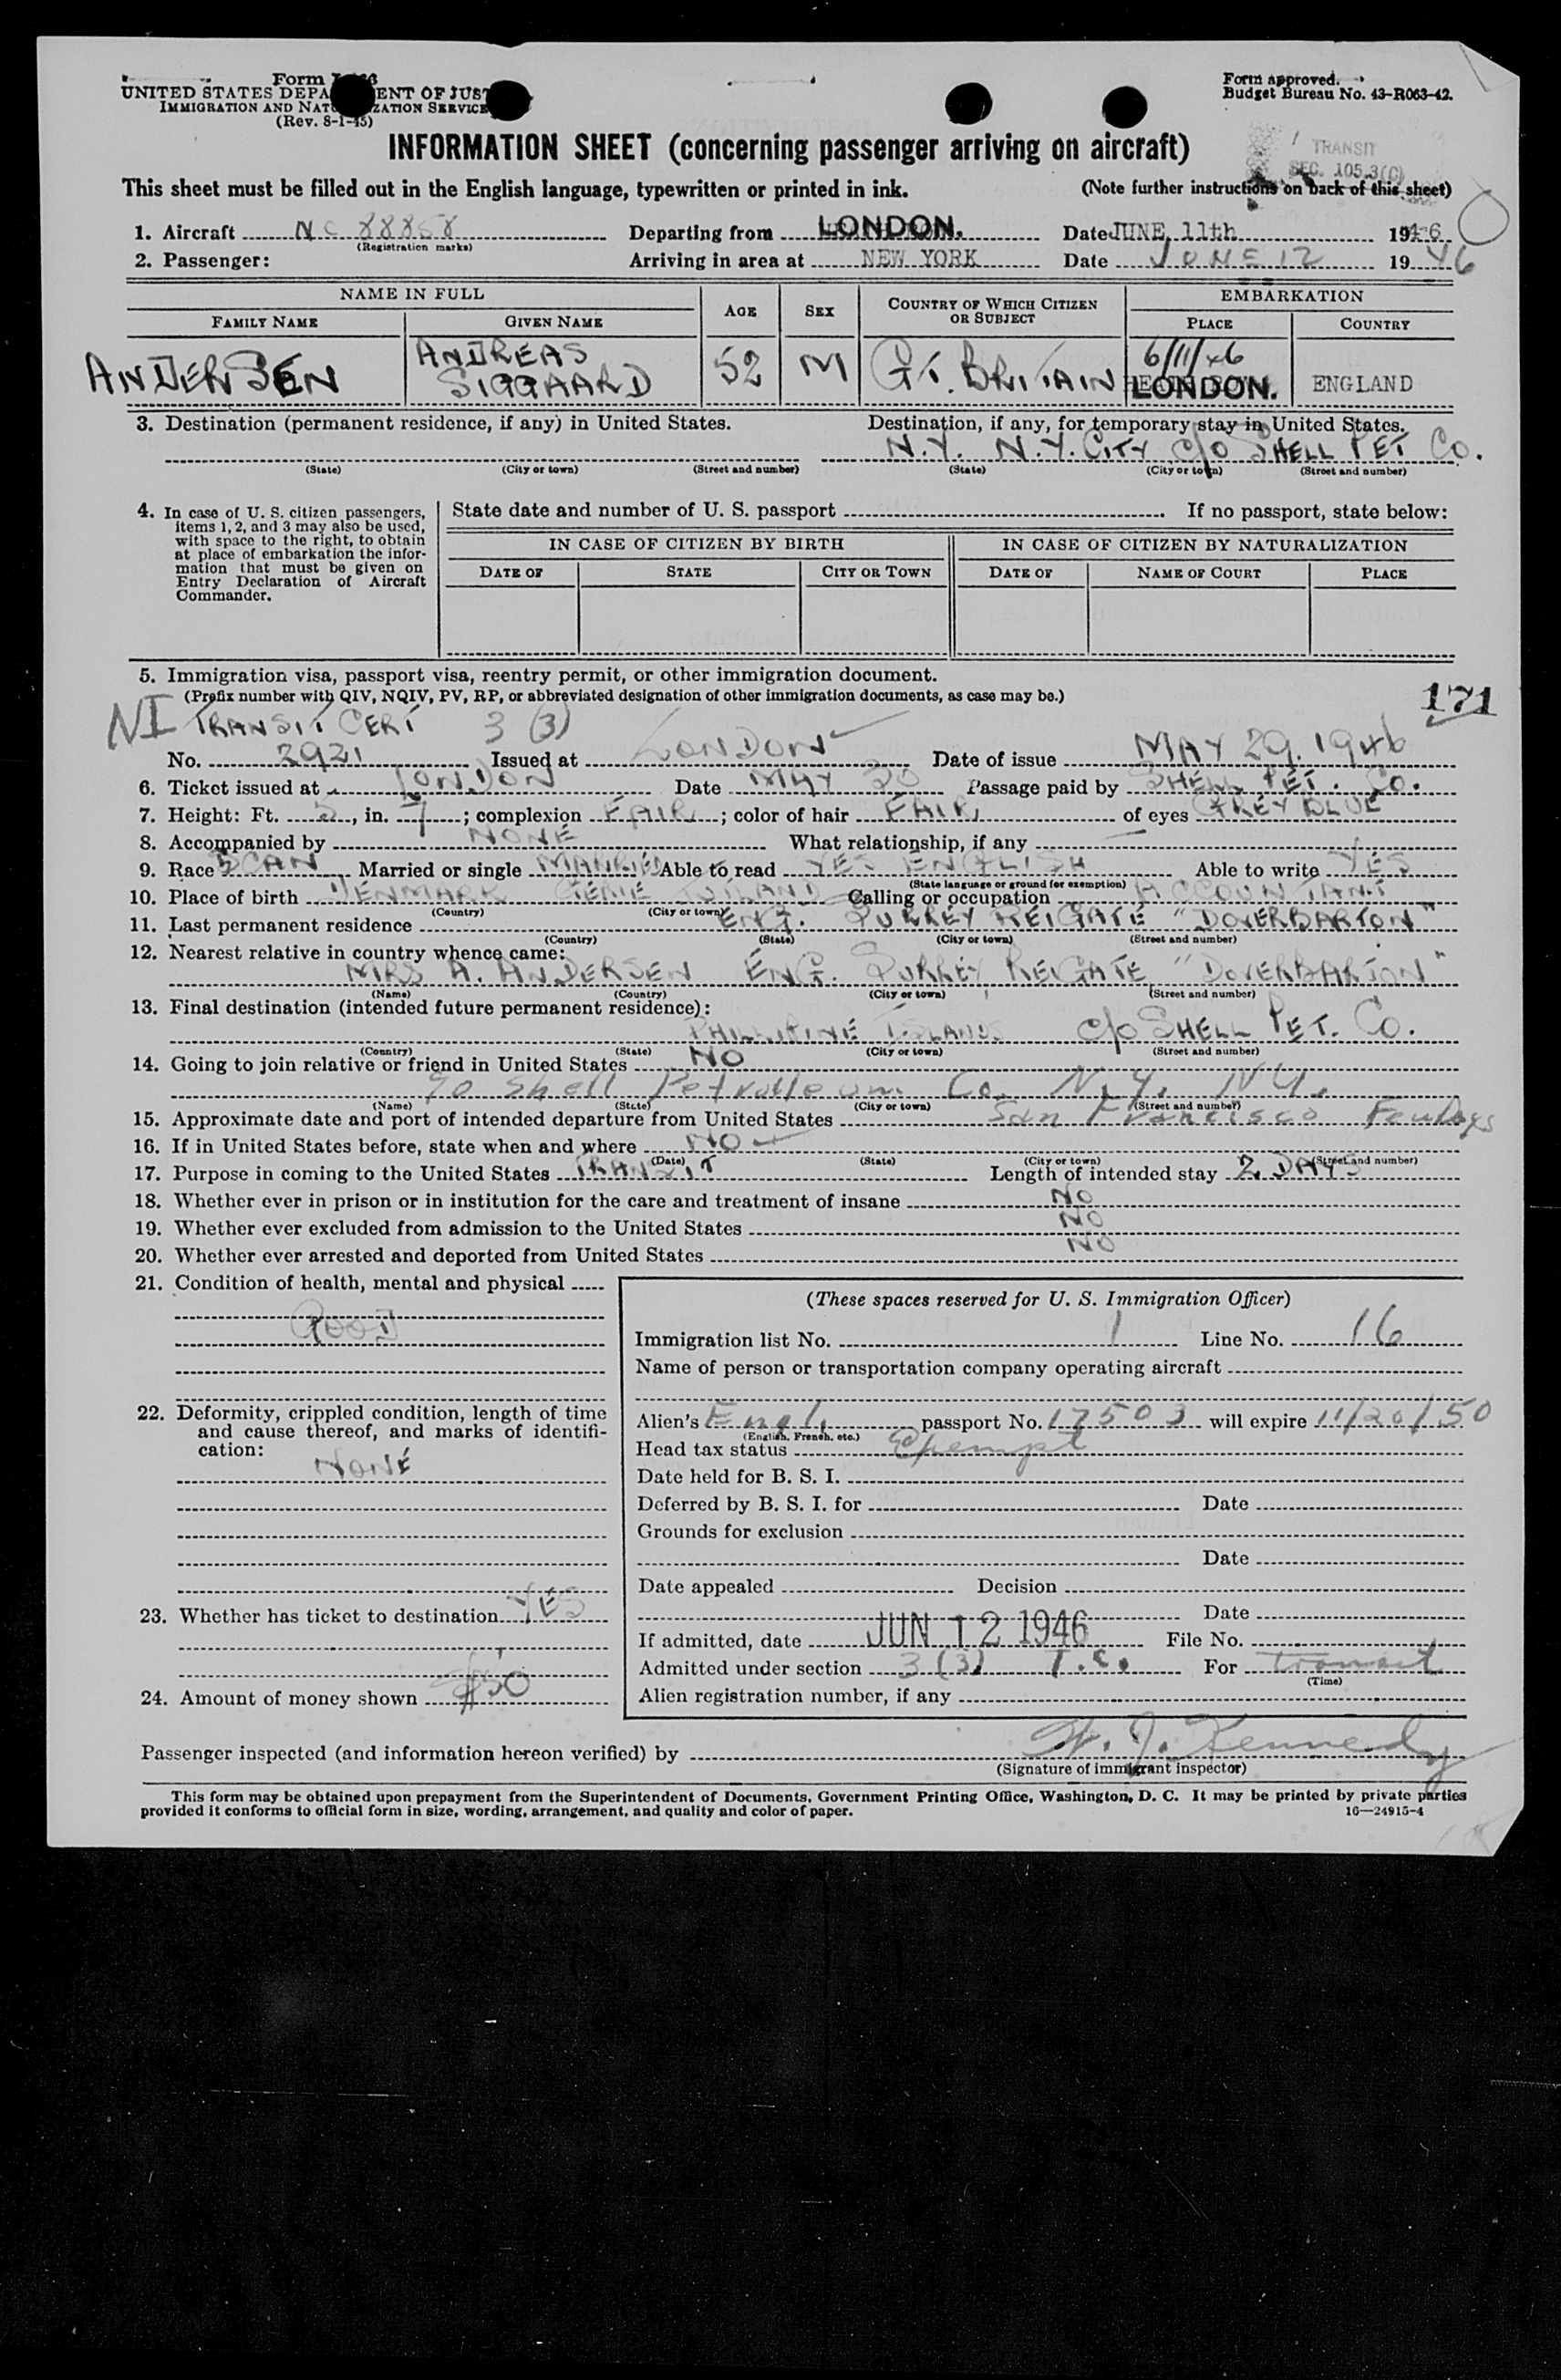 Form I-466
UNITED STATES DEPA ENT OF JUST
IMMIGRATION AND NATU ZATION SERVICE
(Rev. 8-1-45)
Form approved.
Budget Bureau No. 43-R063-42.
INFORMATION SHEET (concerning passenger arriving on aircraft)
TRANSIT
SEC. 105.3(C)
This sheet must be filled out in the English language, typewritten or printed in ink. (Note further instructions on back of this sheet)
1. Aircraft NC 88858 Departing from LONDON. Date JUNE 11th 1946
(Registration marks)
2. Passenger: Arriving in area at NEW YORK Date JUNE 12 1946
NAME IN FULL AGE SEX COUNTRY OF WHICH CITIZEN OR SUBJECT EMBARKATION
FAMILY NAME GIVEN NAME PLACE COUNTRY
ANDERSEN ANDREAS SIGGAARD 52 M GT. BRITAIN 6/11/46 LONDON. ENGLAND
3. Destination (permanent residence, if any) in United States. Destination, if any, for temporary stay in United States.
N.Y. N.Y. CITY c/o SHELL PET Co.
(State) (City or town) (Street and number) (State) (City or town) (Street and number)
4. In case of U. S. citizen passengers, items 1, 2, and 3 may also be used, with space to the right, to obtain at place of embarkation the information that must be given on Entry Declaration of Aircraft Commander.
State date and number of U. S. passport If no passport, state below:
IN CASE OF CITIZEN BY BIRTH IN CASE OF CITIZEN BY NATURALIZATION
DATE OF STATE CITY OR TOWN DATE OF NAME OF COURT PLACE
5. Immigration visa, passport visa, reentry permit, or other immigration document.
(Prefix number with QIV, NQIV, PV, RP, or abbreviated designation of other immigration documents, as case may be.)
171
NI TRANSIT CERT 3 (3)
No. 2921 Issued at LONDON Date of issue MAY 29. 1946
6. Ticket issued at LONDON Date MAY 30 Passage paid by SHELL PET. Co.
7. Height: Ft. 5, in. 7; complexion FAIR; color of hair FAIR of eyes GREY BLUE
8. Accompanied by NONE What relationship, if any
9. Race SCAN Married or single MARRIED Able to read YES ENGLISH Able to write YES
(State language or ground for exemption)
10. Place of birth DENMARK JUTLAND Calling or occupation ACCOUNTANT
(Country) (City or town)
11. Last permanent residence ENG. SURREY REIGATE "DOVERBARTON"
(Country) (State) (City or town) (Street and number)
12. Nearest relative in country whence came:
MRS A. ANDERSEN ENG. SURREY REIGATE "DOVERBARTON"
(Name) (Country) (City or town) (Street and number)
13. Final destination (intended future permanent residence):
PHILLIPINE ISLANDS c/o SHELL PET. Co.
(Country) (State) (City or town) (Street and number)
14. Going to join relative or friend in United States NO
c/o Shell Petroleum Co. N.Y. N.Y.
(Name) (State) (City or town) (Street and number)
15. Approximate date and port of intended departure from United States San Francisco Few Days
16. If in United States before, state when and where NO
(Date) (State) (City or town) (Street and number)
17. Purpose in coming to the United States TRANSIT Length of intended stay 2 DAYS
18. Whether ever in prison or in institution for the care and treatment of insane NO
19. Whether ever excluded from admission to the United States NO
20. Whether ever arrested and deported from United States NO
21. Condition of health, mental and physical
GOOD
22. Deformity, crippled condition, length of time and cause thereof, and marks of identification:
NONE
23. Whether has ticket to destination YES
24. Amount of money shown $50
(These spaces reserved for U. S. Immigration Officer)
Immigration list No. 1 Line No. 16
Name of person or transportation company operating aircraft
Alien's Engl. passport No. 17503 will expire 11/20/50
(English, French, etc.)
Head tax status Exempt
Date held for B. S. I.
Deferred by B. S. I. for Date
Grounds for exclusion
Date
Date appealed Decision
Date
If admitted, date JUN 12 1946 File No.
Admitted under section 3(3) T.C. For transit
(Time)
Alien registration number, if any
Passenger inspected (and information hereon verified) by W. J. Kennedy
(Signature of immigrant inspector)
This form may be obtained upon prepayment from the Superintendent of Documents, Government Printing Office, Washington, D. C. It may be printed by private parties
provided it conforms to official form in size, wording, arrangement, and quality and color of paper. 16—24915-4